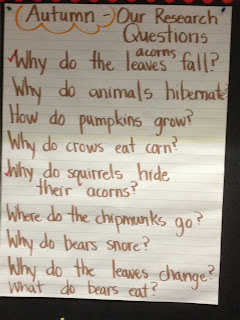 Autumn - Our Research
Questions
acorns
Why do the leaves fall?
Why do animals hibernate?
How do pumpkins grow?
Why do crows eat corn?
Why do squirrels hide
their acorns?
Where do the chipmunks go?
Why do bears snore?
Why do the leaves change?
What do bears eat?